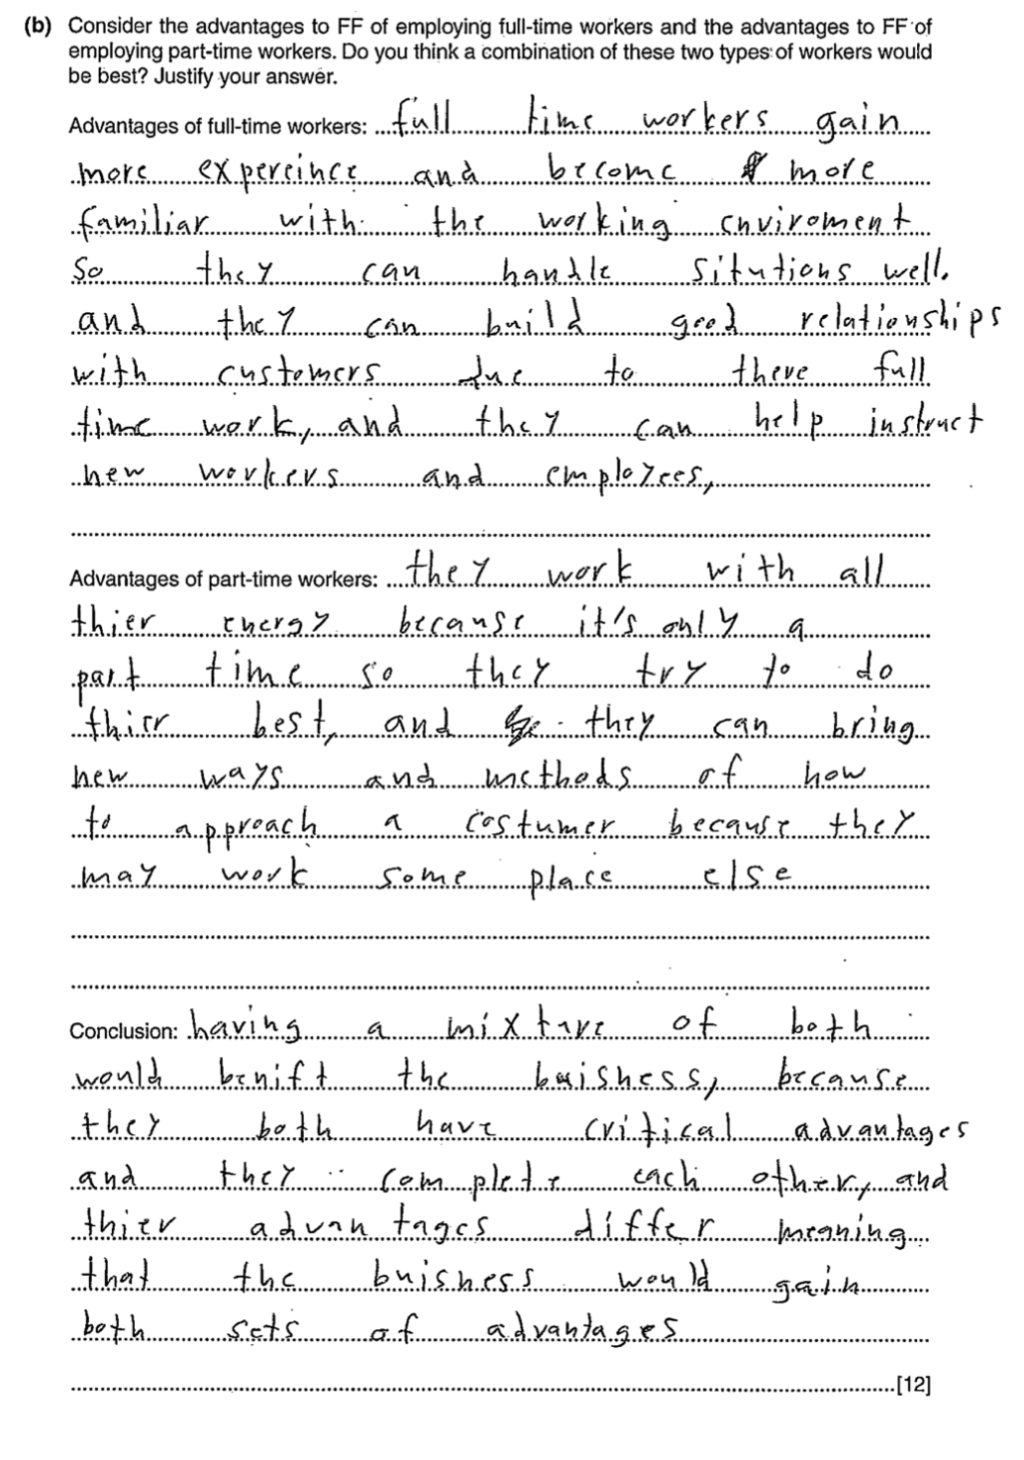 (b) Consider the advantages to FF of employing full-time workers and the advantages to FF of
employing part-time workers. Do you think a combination of these two types of workers would
be best? Justify your answer.
Advantages of full-time workers: full time workers gain
more expercince and become more
familiar with the working enviroment
so they can handle situtions well.
and they can build good relationships
with customers due to there full
time work, and they can help instruct
new workers and employees,
Advantages of part-time workers: they work with all
thier energy because it's only a
part time so they try to do
thier best, and they can bring
new ways and methods of how
to approach a costumer because they
may work some place else
Conclusion: having a mixture of both
would benift the buisness, because
they both have critical advantages
and they complete each other, and
thier advantages differ meaning
that the buisness would gain
both sets of advantages
[12]